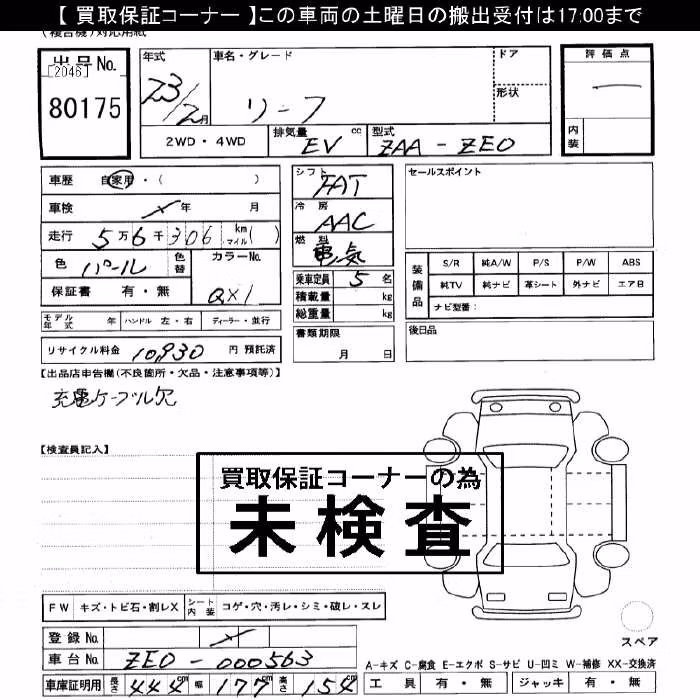 【 買取保証コーナー 】この車両の土曜日の搬出受付は17:00まで
(複合機)対応用紙
出品No.
[2046]
80175
年式
23/2月
車名・グレード
リーフ
ドア
形状
評価点
—
内装
2WD・4WD
排気量
EV cc
型式
ZAA-ZE0
車歴 自家用・( )
車検 × 年 月
走行 5万6千306 km マイル( )
色 パール
色替
カラーNo.
QX1
保証書 有・無
モデル年式 年 ハンドル 左・右 ディーラー・並行
リサイクル料金 10,930 円 預託済
シフト
FAT
冷房
AAC
燃料
電気
乗車定員 5 名
積載量 kg
総重量 kg
書類期限
月 日
セールスポイント
装備品
S/R 純A/W P/S P/W ABS
純TV 純ナビ 革シート 外ナビ エアB
ナビ型番:
後日品
【出品店申告欄(不良箇所・欠品・注意事項等)】
充電ケーブル欠
【検査員記入】
買取保証コーナーの為
未検査
FW キズ・トビ石・割レX シート内装 コゲ・穴・汚レ・シミ・破レ・スレ
登録No. ×
車台No. ZE0-000563
車庫証明用 長さ 444cm 幅 177cm 高さ 154cm
スペア
A-キズ C-腐食 E-エクボ S-サビ U-凹ミ W-補修 XX-交換済
工具 有・無 ジャッキ 有・無